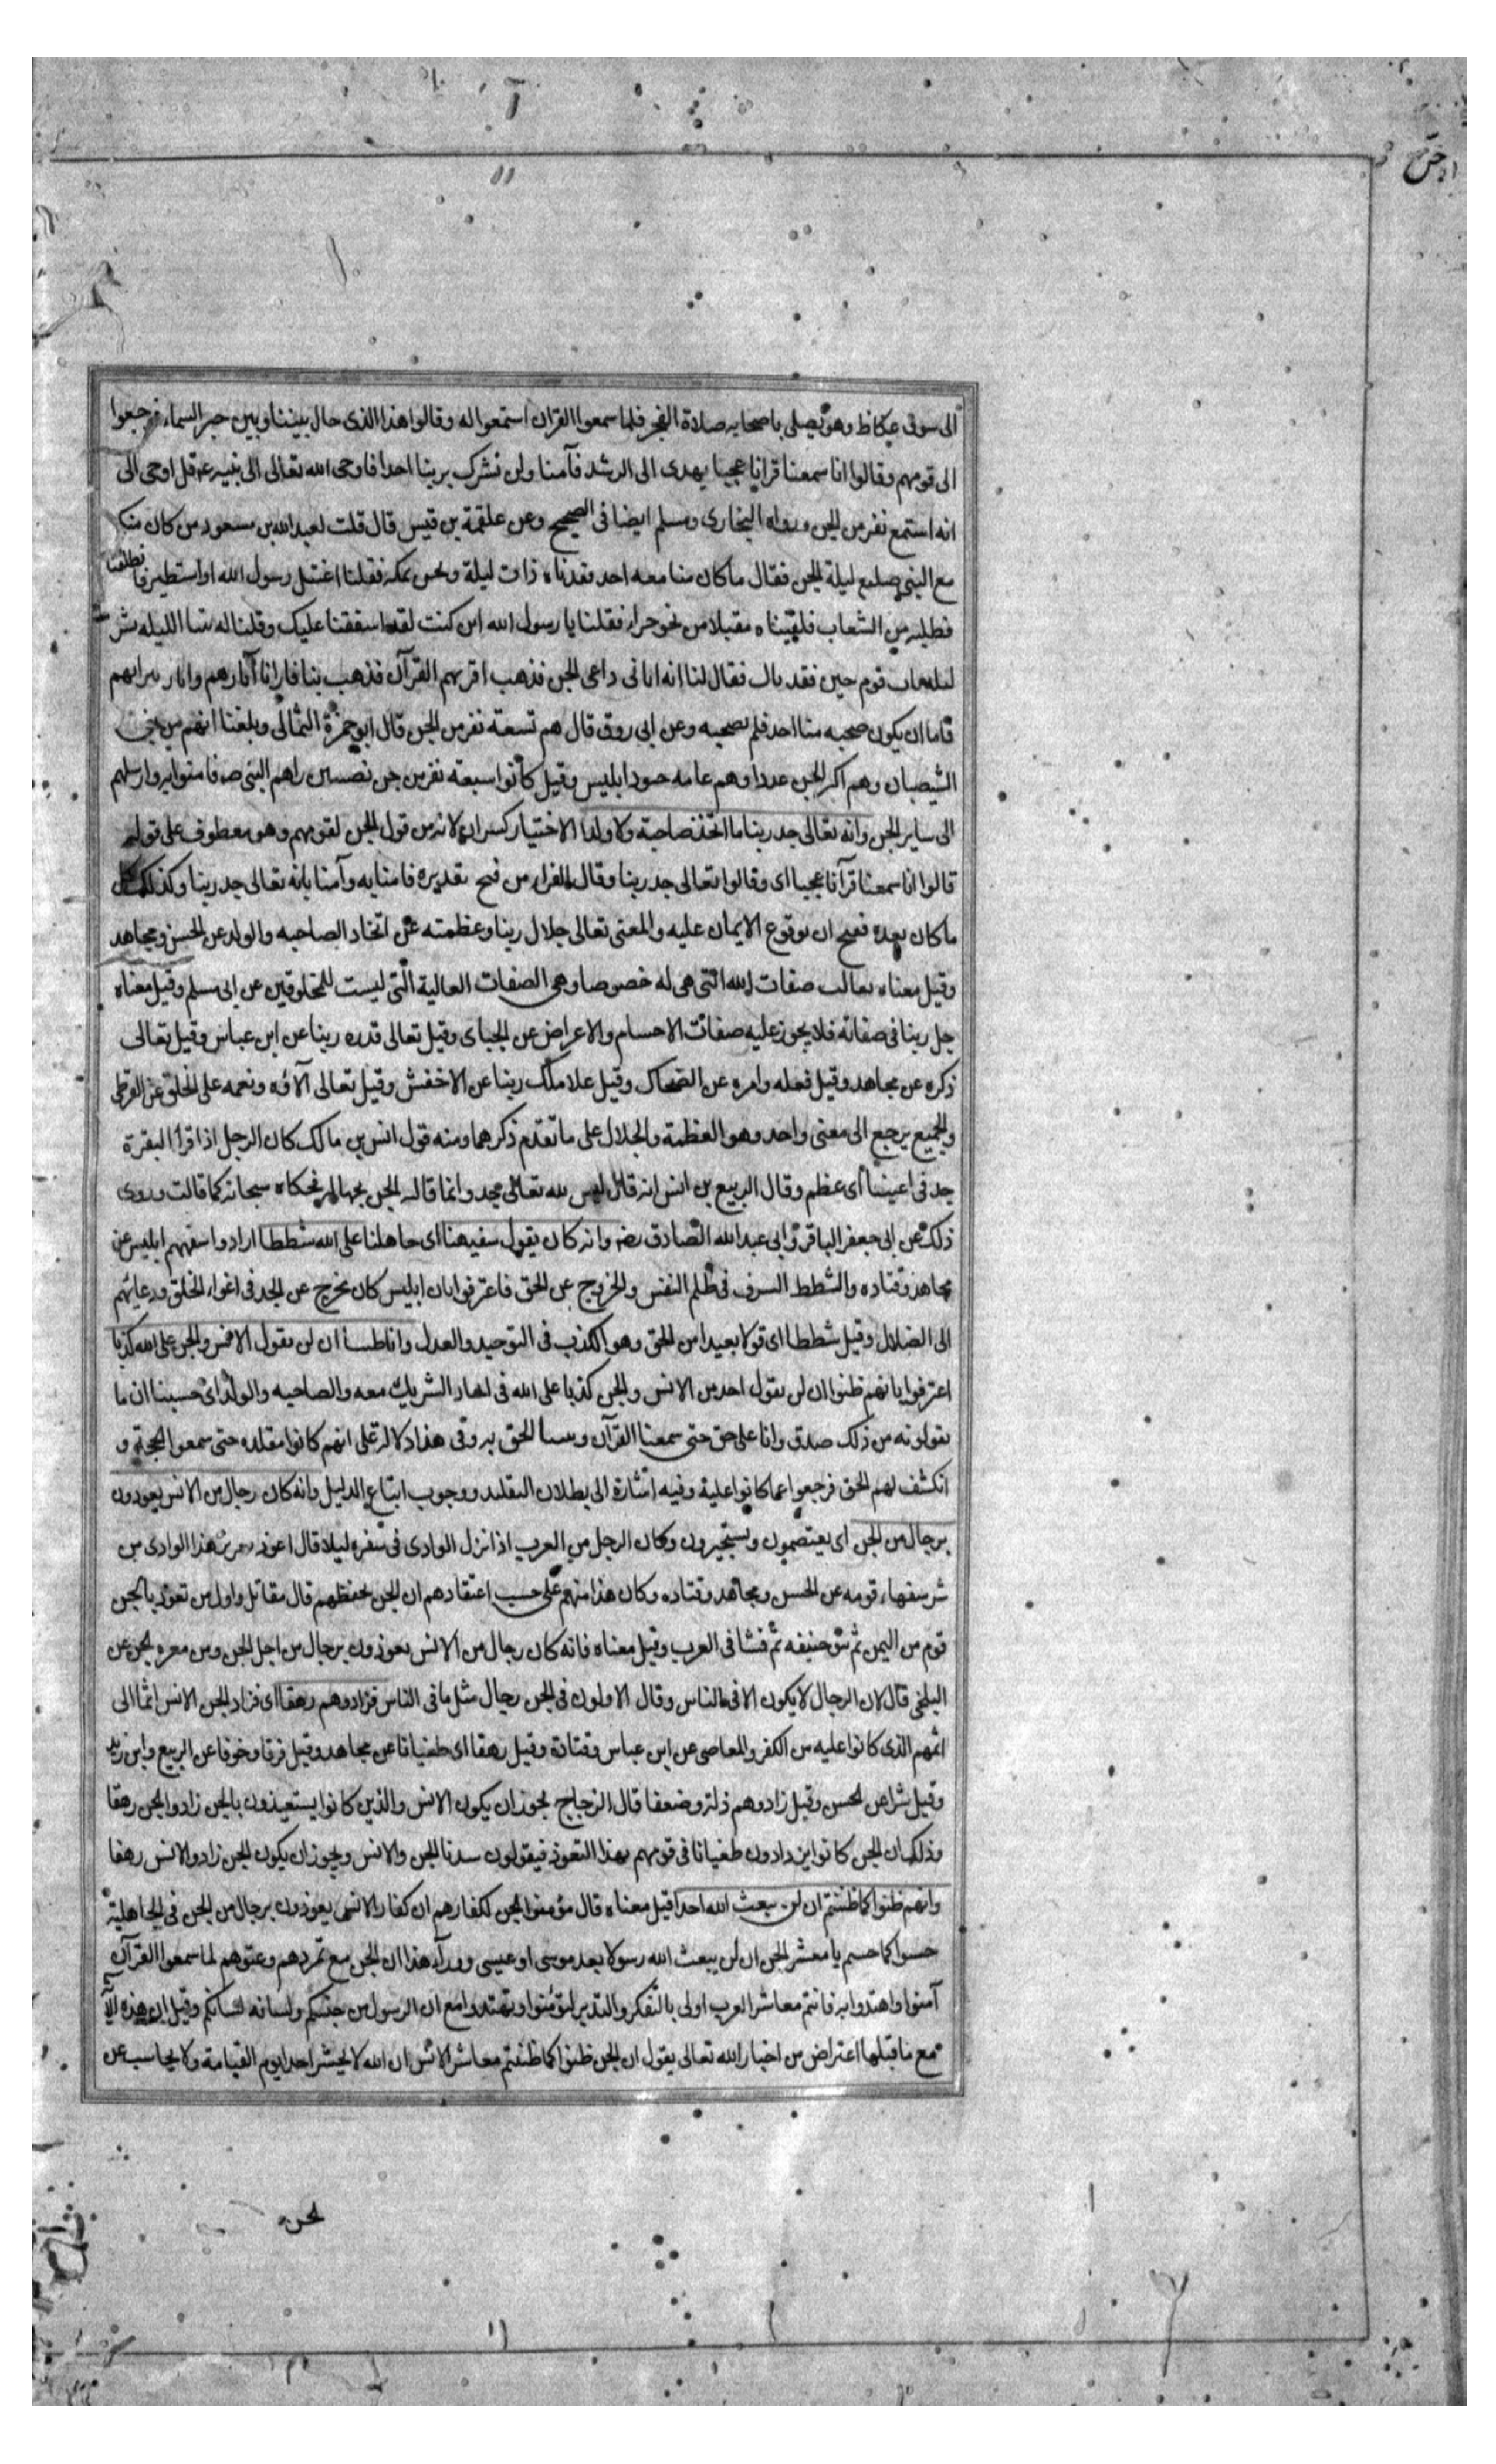 الى سوق عكاظ وهو يصلى باصحابه صلاة الفجر فلما سمعوا القران استمعوا له وقالوا هذا الذى حال بيننا وبين خبر السماء فرجعوا
الى قومهم وقالوا انا سمعنا قرانا عجبا يهدى الى الرشد فآمنا ولن نشرك بربنا احدا فاوحى الله تعالى الى نبيه قل اوحى الى
انه استمع نفر من الجن ورواه البخارى ومسلم ايضا فى الصحيح وعن علقمة بن قيس قال قلت لعبد الله بن مسعود من كان منكم
مع النبى صلعم ليلة الجن فقال ما كان منا معه احد فقدناه ذات ليلة ونحن بمكة فقلنا اغتيل رسول الله او استطير فانطلقنا
نطلبه من الشعاب فلقيناه مقبلا من نحو حراء فقلنا يا رسول الله اين كنت لقد اسفقنا عليك وقلنا له بتنا الليلة بشر
ليلة بات قوم حين فقدناك فقال لنا انه اتانى داعى الجن فذهب اقريهم القرآن فذهب بنا فارانا آثارهم واثار نيرانهم
فاما ان يكون صحبه منا احد فلم يصحبه وعن ابى روق قال هم تسعة نفر من الجن قال ابو حمزة الثمالى وبلغنا انهم من بنى
الشيصبان وهم اكثر الجن عددا وهم عامه جنود ابليس وقيل كانوا سبعة نفر من جن نصيبين راهم النبى صه فامنوا به وارسلهم
الى ساير الجن وانه تعالى جد ربنا ما اتخذ صاحبة ولا ولدا الاختيار كسر ان لانه من قول الجن لقومهم وهو معطوف على قولهم
قالوا انا سمعنا قرآنا عجبا اى وقالوا تعالى جد ربنا وقال الفراء من فتح تقديره فامنا به وآمنا بانه تعالى جد ربنا وكذلك كل
ما كان بعده ففتح ان بوقوع الايمان عليه والمعنى تعالى جلال ربنا وعظمته عن اتخاذ الصاحبه والولد عن الحسن ومجاهد
وقيل معناه تعالت صفات الله التى هى له خصوصا وهى الصفات العالية التى ليست للمخلوقين عن ابى مسلم وقيل معناه
جل ربنا فى صفاته فلا يجوز عليه صفات الاجسام والاعراض عن الجباى وقيل تعالى قدره ربنا عن ابن عباس وقيل تعالى
ذكره عن مجاهد وقيل فعله وامره عن الضحاك وقيل علا ملك ربنا عن الاخفش وقيل تعالى آلاؤه ونعمه على الخلق عن القرظى
والجميع يرجع الى معنى واحد وهو العظمة والجلال على ما تقدم ذكرهما ومنه قول انس بن مالك كان الرجل اذا قرا البقرة
جد فى اعيننا اى عظم وقال الربيع بن انس انه قال ليس لله تعالى جد وانما قالته الجن بجهالة فحكاه سبحانه كما قالت وروى
ذلك عن ابى جعفر الباقر وابى عبد الله الصادق وانه كان يقول سفيهنا اى جاهلنا على الله شططا ارادوا بسفيههم ابليس عن
مجاهد وقتاده والشطط السرف فى ظلم النفس والخروج عن الحق فاعترفوا بان ابليس كان يخرج عن الحد فى اغواء الخلق ودعائهم
الى الضلال وقيل شططا اى قولا بعيدا من الحق وهو الكذب فى التوحيد والعدل وانا ظننا ان لن تقول الانس والجن على الله كذبا
اعترفوا بانهم ظنوا ان لن يقول احد من الانس والجن كذبا على الله فى اتخاذ الشريك معه والصاحبه والولد اى حسبنا ان ما
يقولونه من ذلك صدق وانا على حق حتى سمعنا القرآن وتبينا الحق به وفى هذا دلالة على انهم كانوا مقلده حتى سمعوا الحجة و
انكشف لهم الحق فرجعوا عما كانوا علية وفيه اشارة الى بطلان التقليد ووجوب اتباع الدليل وانه كان رجال من الانس يعوذون
برجال من الجن اى يعتصمون ويستجيرون وكان الرجل من العرب اذا نزل الوادى فى سفره ليلا قال اعوذ بعزيز هذا الوادى من
شر سفهاء قومه عن الحسن ومجاهد وقتاده وكان هذا منهم على حسب اعتقادهم ان الجن تحفظهم قال مقاتل واول من تعوذ بالجن
قوم من اليمن ثم بنو حنيفه ثم فشا فى العرب وقيل معناه فانه كان رجال من الانس يعوذون برجال من اجل الجن ومن معره الجن عن
البلخى قال لان الرجال لا يكون الا فى الناس وقال الاولون فى الجن رجال مثل ما فى الناس فزادوهم رهقا اى فزاد الجن الانس اثما الى
اثمهم الذى كانوا عليه من الكفر والمعاصى عن ابن عباس وقتادة وقيل رهقا اى طغيانا عن مجاهد وقيل فرقا وخوفا عن الربيع وابن زيد
وقيل شرا عن الحسن وقيل زادوهم ذلة وضعفا قال الزجاج يجوز ان يكون الانس والذين كانوا يستعيذون بالجن زادوا الجن رهقا
وذلك ان الجن كانوا يزدادون طغيانا فى قومهم بهذا التعوذ فيقولون سدنا الجن والانس ويجوز ان يكون الجن زادوا الانس رهقا
وانهم ظنوا كما ظننتم ان لن يبعث الله احدا قيل معناه قال مؤمنوا الجن لكفارهم ان كفار الانس يعوذون برجال من الجن فى الجاهلية
حسبوا كما حسبتم يا معشر الجن ان لن يبعث الله رسولا بعد موسى او عيسى وورآء هذا ان الجن مع تمردهم وعتوهم لما سمعوا القرآن
آمنوا واهتدوا به فانتم معاشر العرب اولى بالتفكر والتدبر لتؤمنوا وتهتدوا مع ان الرسول من جنسكم ولسانه لسانكم وقيل ان هذه الآية
مع ما قبلها اعتراض من اخبار الله تعالى يقول ان الجن ظنوا كما ظننتم معاشر الانس ان الله لا يحشر احدا يوم القيامة ولا يحاسب عن